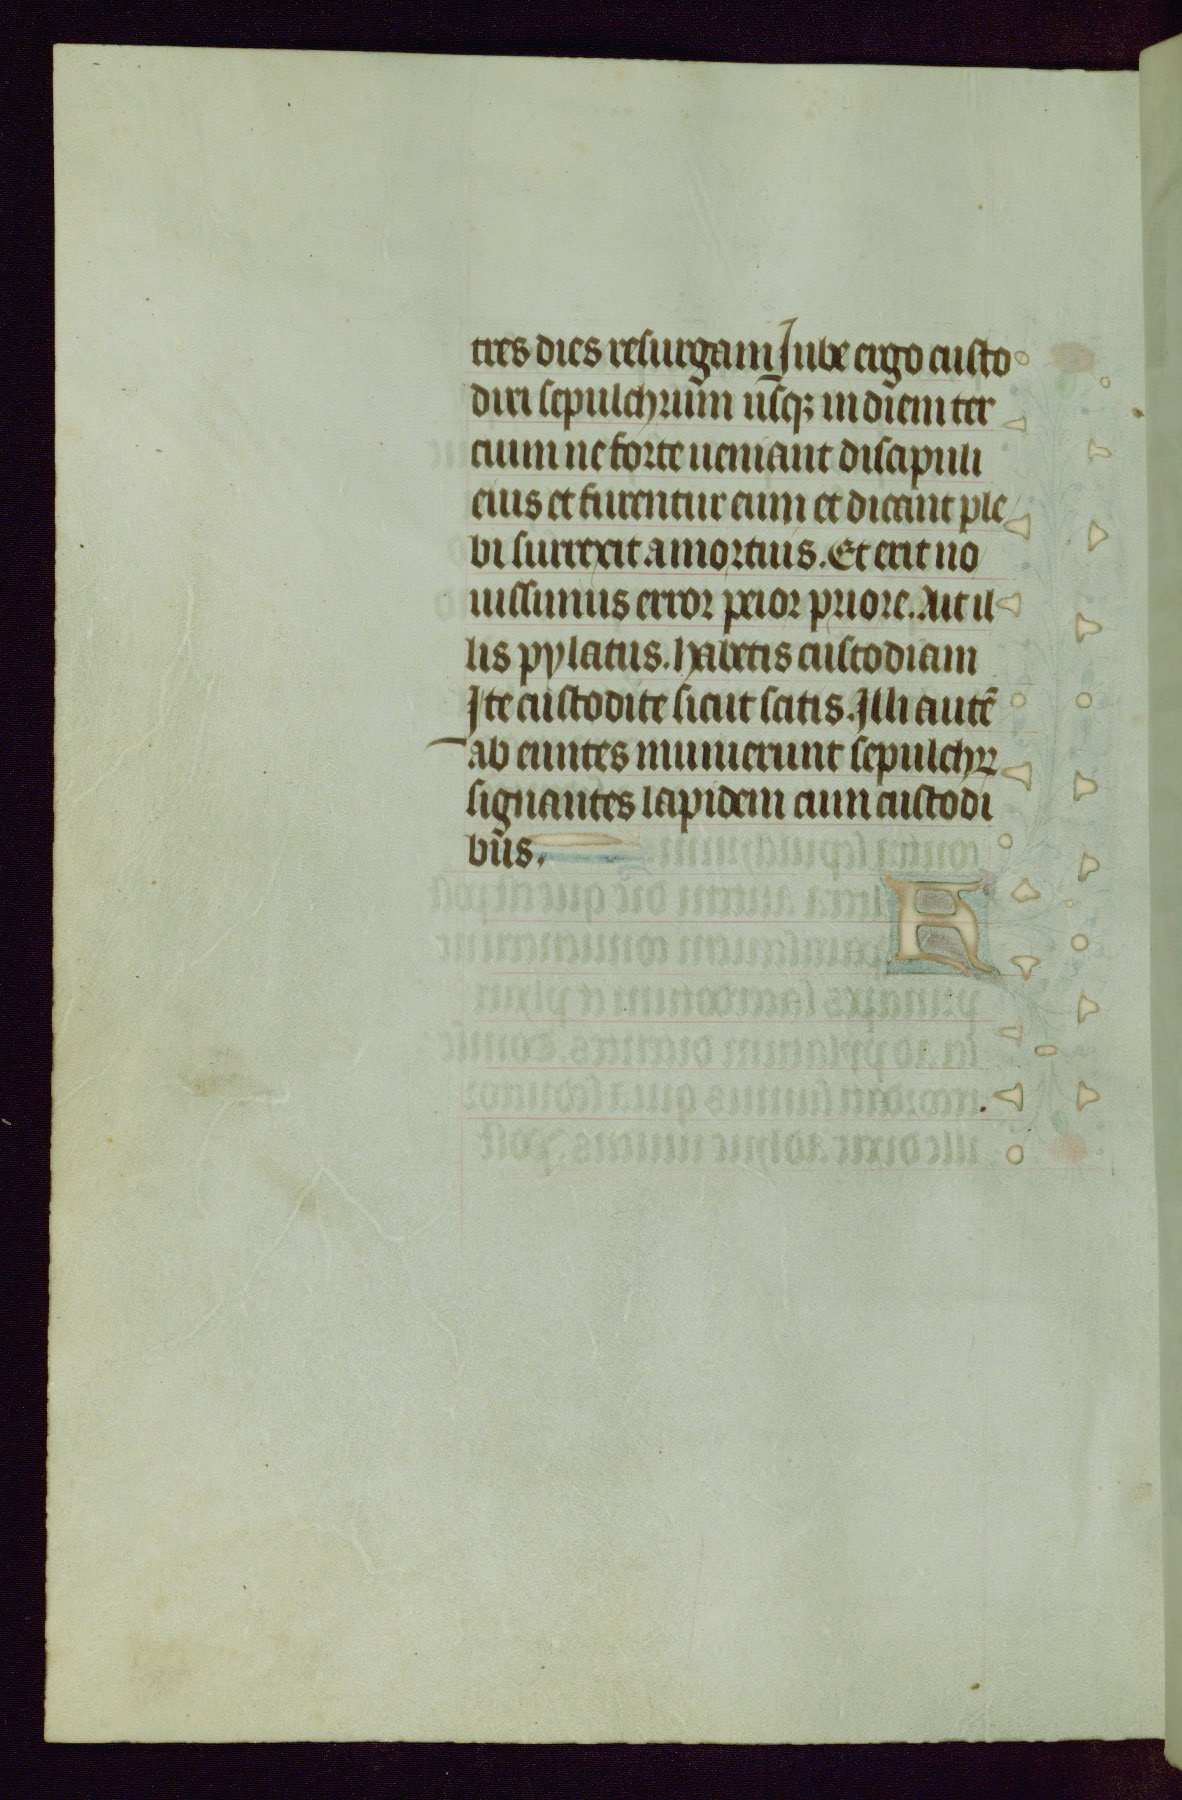 tres dies resurgam Iube ergo custo
diri sepulchrum usq; in diem ter
cium ne forte ueniant discipuli
eius et furentur eum et dicant ple
bi surrexit a mortuis. Et erit no
uissimus error peior priore. Ait il
lis pylatus. habetis custodiam
Ite custodite sicut scitis. Illi autē
ab euntes munierunt sepulchꝝ
signantes lapidem cum custodi
bus.